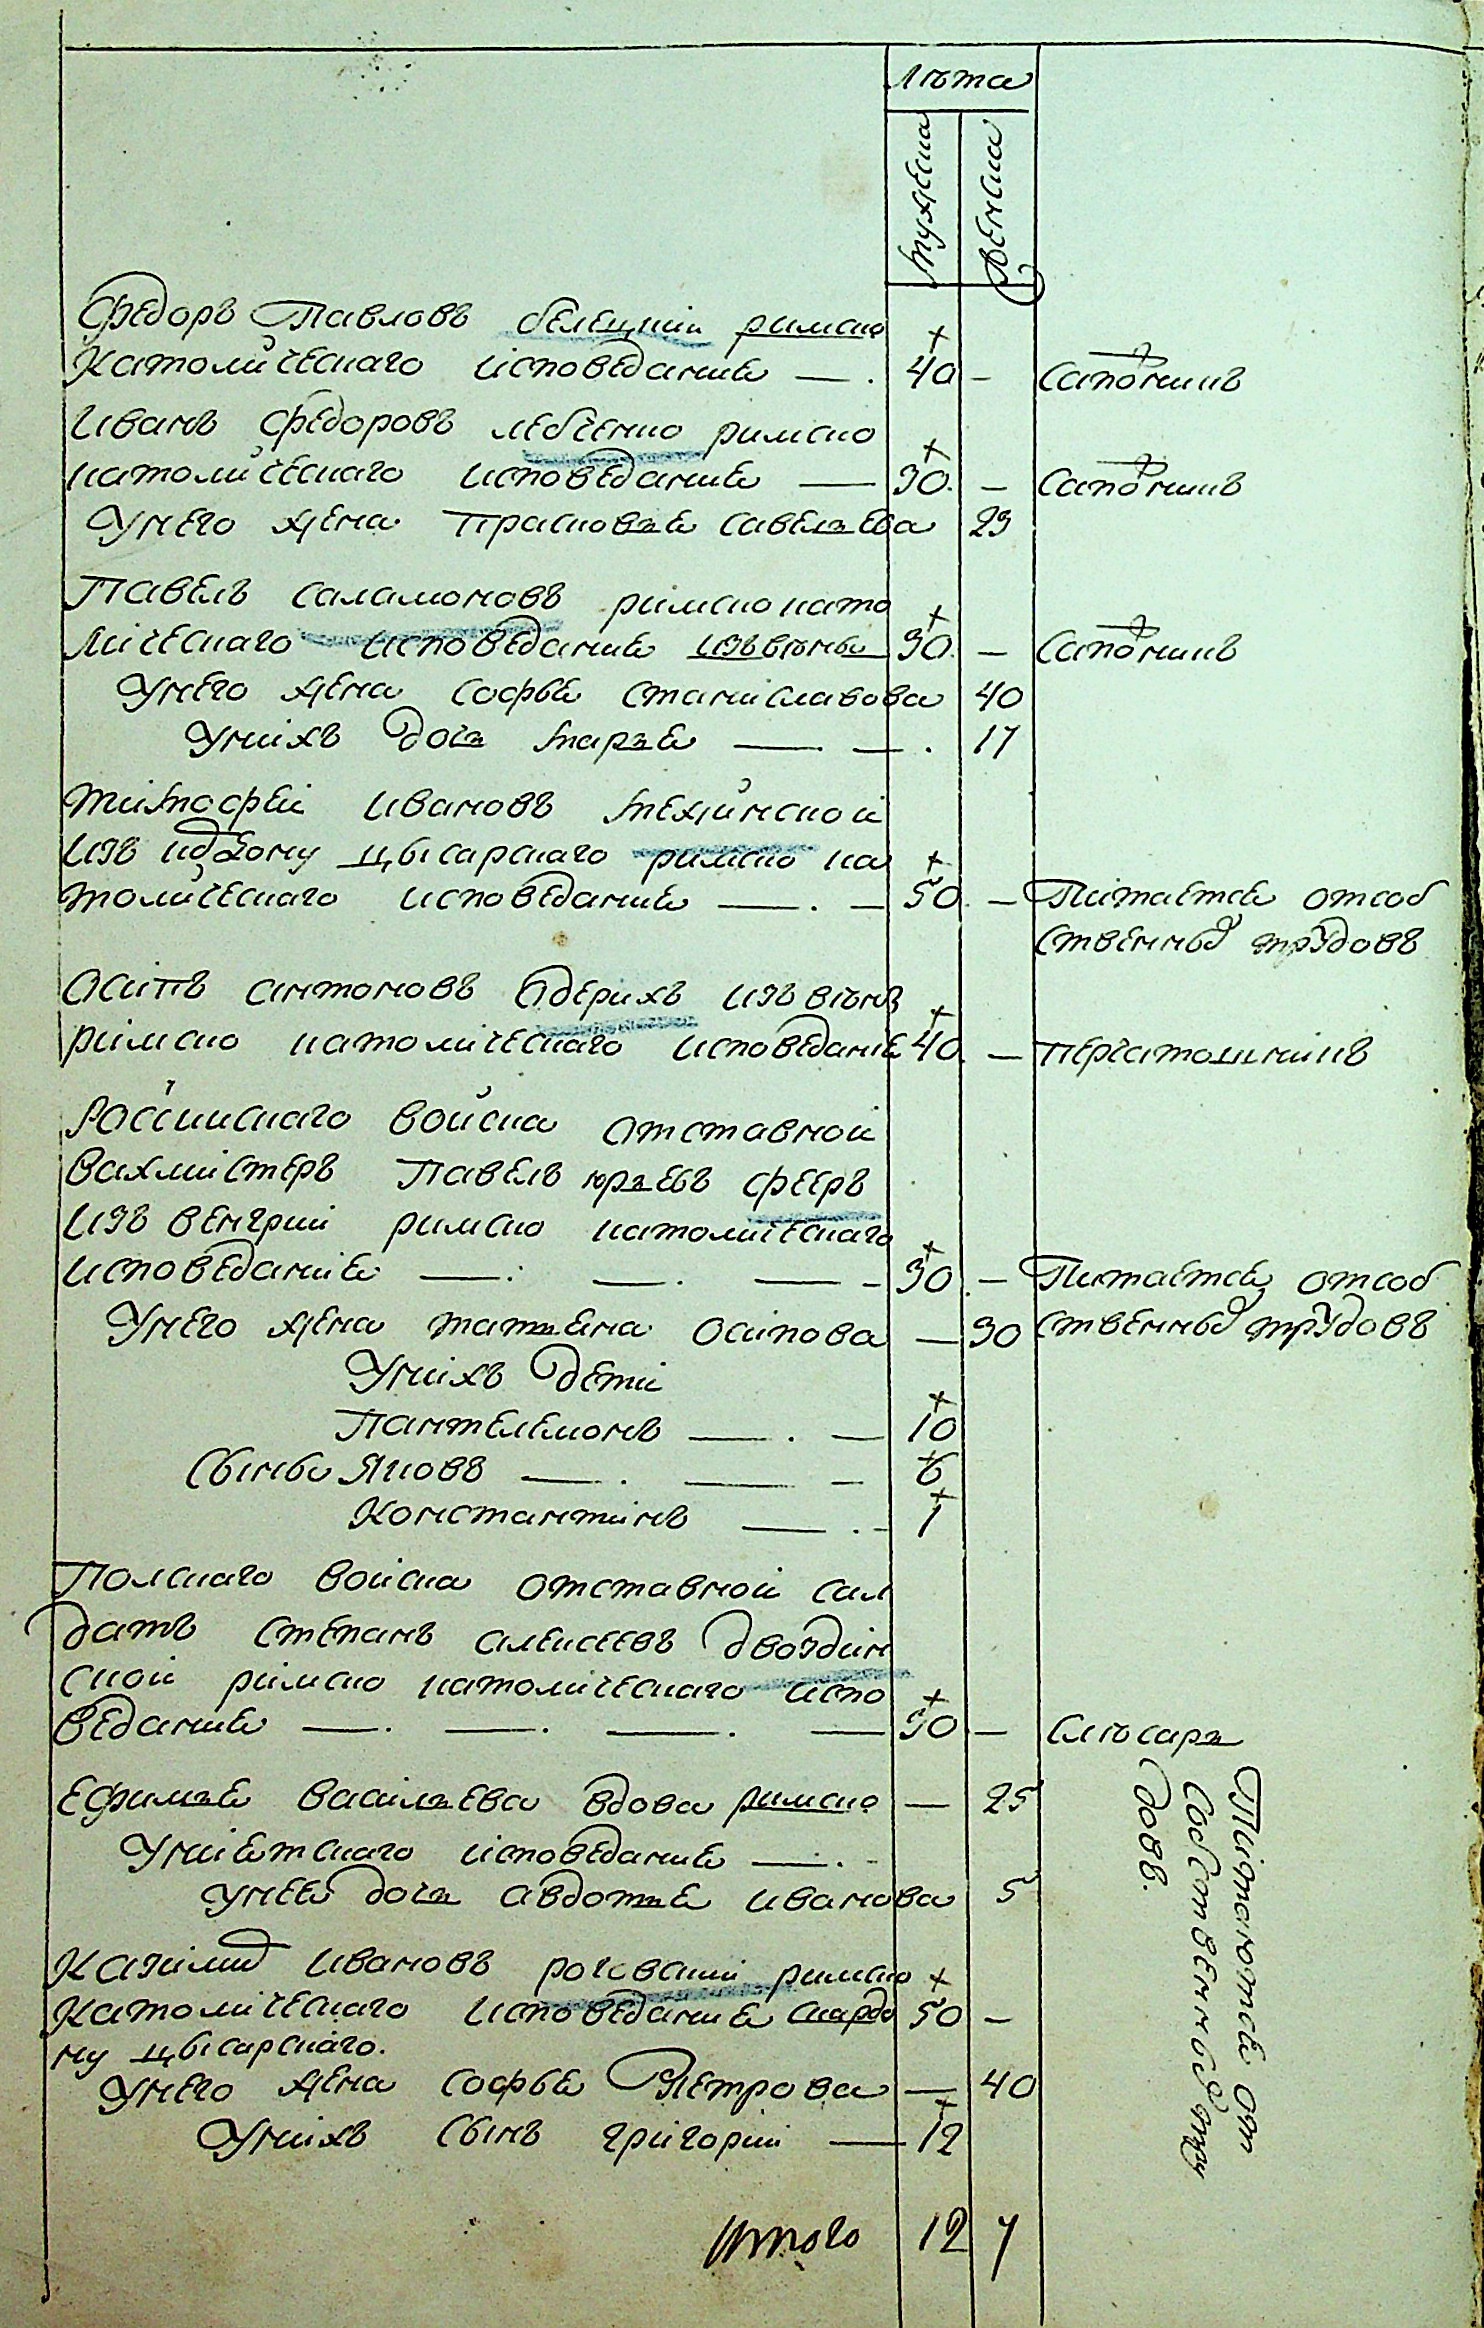 Лѣта
Мужеска
Женска
Федоръ Павловъ белецкіи римско
Католическаго исповедание — . 40 — Сапожникъ
Иванъ Федоровъ лебченко римско
католическаго исповедание — 30. — Сапожникъ
Унего жена Прасковье Савельева 29
Павелъ Саламоновъ римскокато
лическаго исповедание изъ вѣны 30. — Сапожникъ
Унего жена Софье Станиславова 40
Унихъ дочь Марье — . — . 17
Тимофеи Ивановъ
изъ цысарскаго римско ка
толическаго исповедание — . — 50. — Питаетсе отсоб
ственныхъ трудовъ
Осипъ Антоновъ изъ вѣнъ
римско католическаго исповеданіе 40. — перчатошникъ
Россиискаго воиска отставной
Вахмистеръ Павелъ юрьевъ фееръ
изъ венгрии римско католическаго
исповеданіе — . — . — — 30. — Питаетсе отсоб
Унего жена татьяна Осипова — 30 ственныхъ трудовъ
Унихъ дети
Пантелемонъ — . — 10
Сыны Яковъ — . — — 6
Константинъ — . - 1
Полскаго воиска отставной сал
датъ Степанъ алексеевъ двоздин
ской римско католическаго испо
ведание — . — . — . — 30 — Слѣсарь
Ефимье Васильева вдова римско — 25
Униетскаго исповедание — . -
унее дочь Авдотье иванова 5
Питаютсе от
Собственныхъ тру
довъ.
Казимир Ивановъ римско
католическаго исповедание 50 —
му цысарскаго.
Унего жена Софье Петрова — 40
Унихъ сынъ григории — 12
Итого 12 7